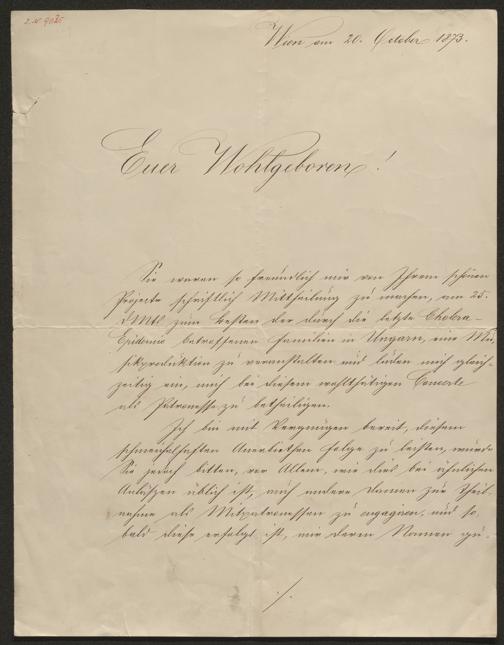 Z. N. 9025
Wien am 20. October 1873.
Euer Wohlgeboren!
Sie waren so freundlich mir von Ihrem schönen
Projecte schriftlich Mittheilung zu machen, am 25.
d Mts zum Besten der durch die letzte Cholera-
Epidemie betroffenen Familien in Ungarn, eine Mu-
sikproduktion zu veranstalten und luden mich gleich-
zeitig ein, mich bei diesem wohlthätigen Concerte
als Patronesse zu betheiligen.
Ich bin mit Vergnügen bereit, diesem
schmeichelhaften Anerbiethen Folge zu leisten, würde
Sie jedoch bitten, vor Allem, wie dies bei ähnlichen
Anlässen üblich ist, noch andere Damen zur Theil-
nahme als Mitpatronessen zu engagiren, und so-
bald diese erfolgt ist, mir deren Namen ge-
./.